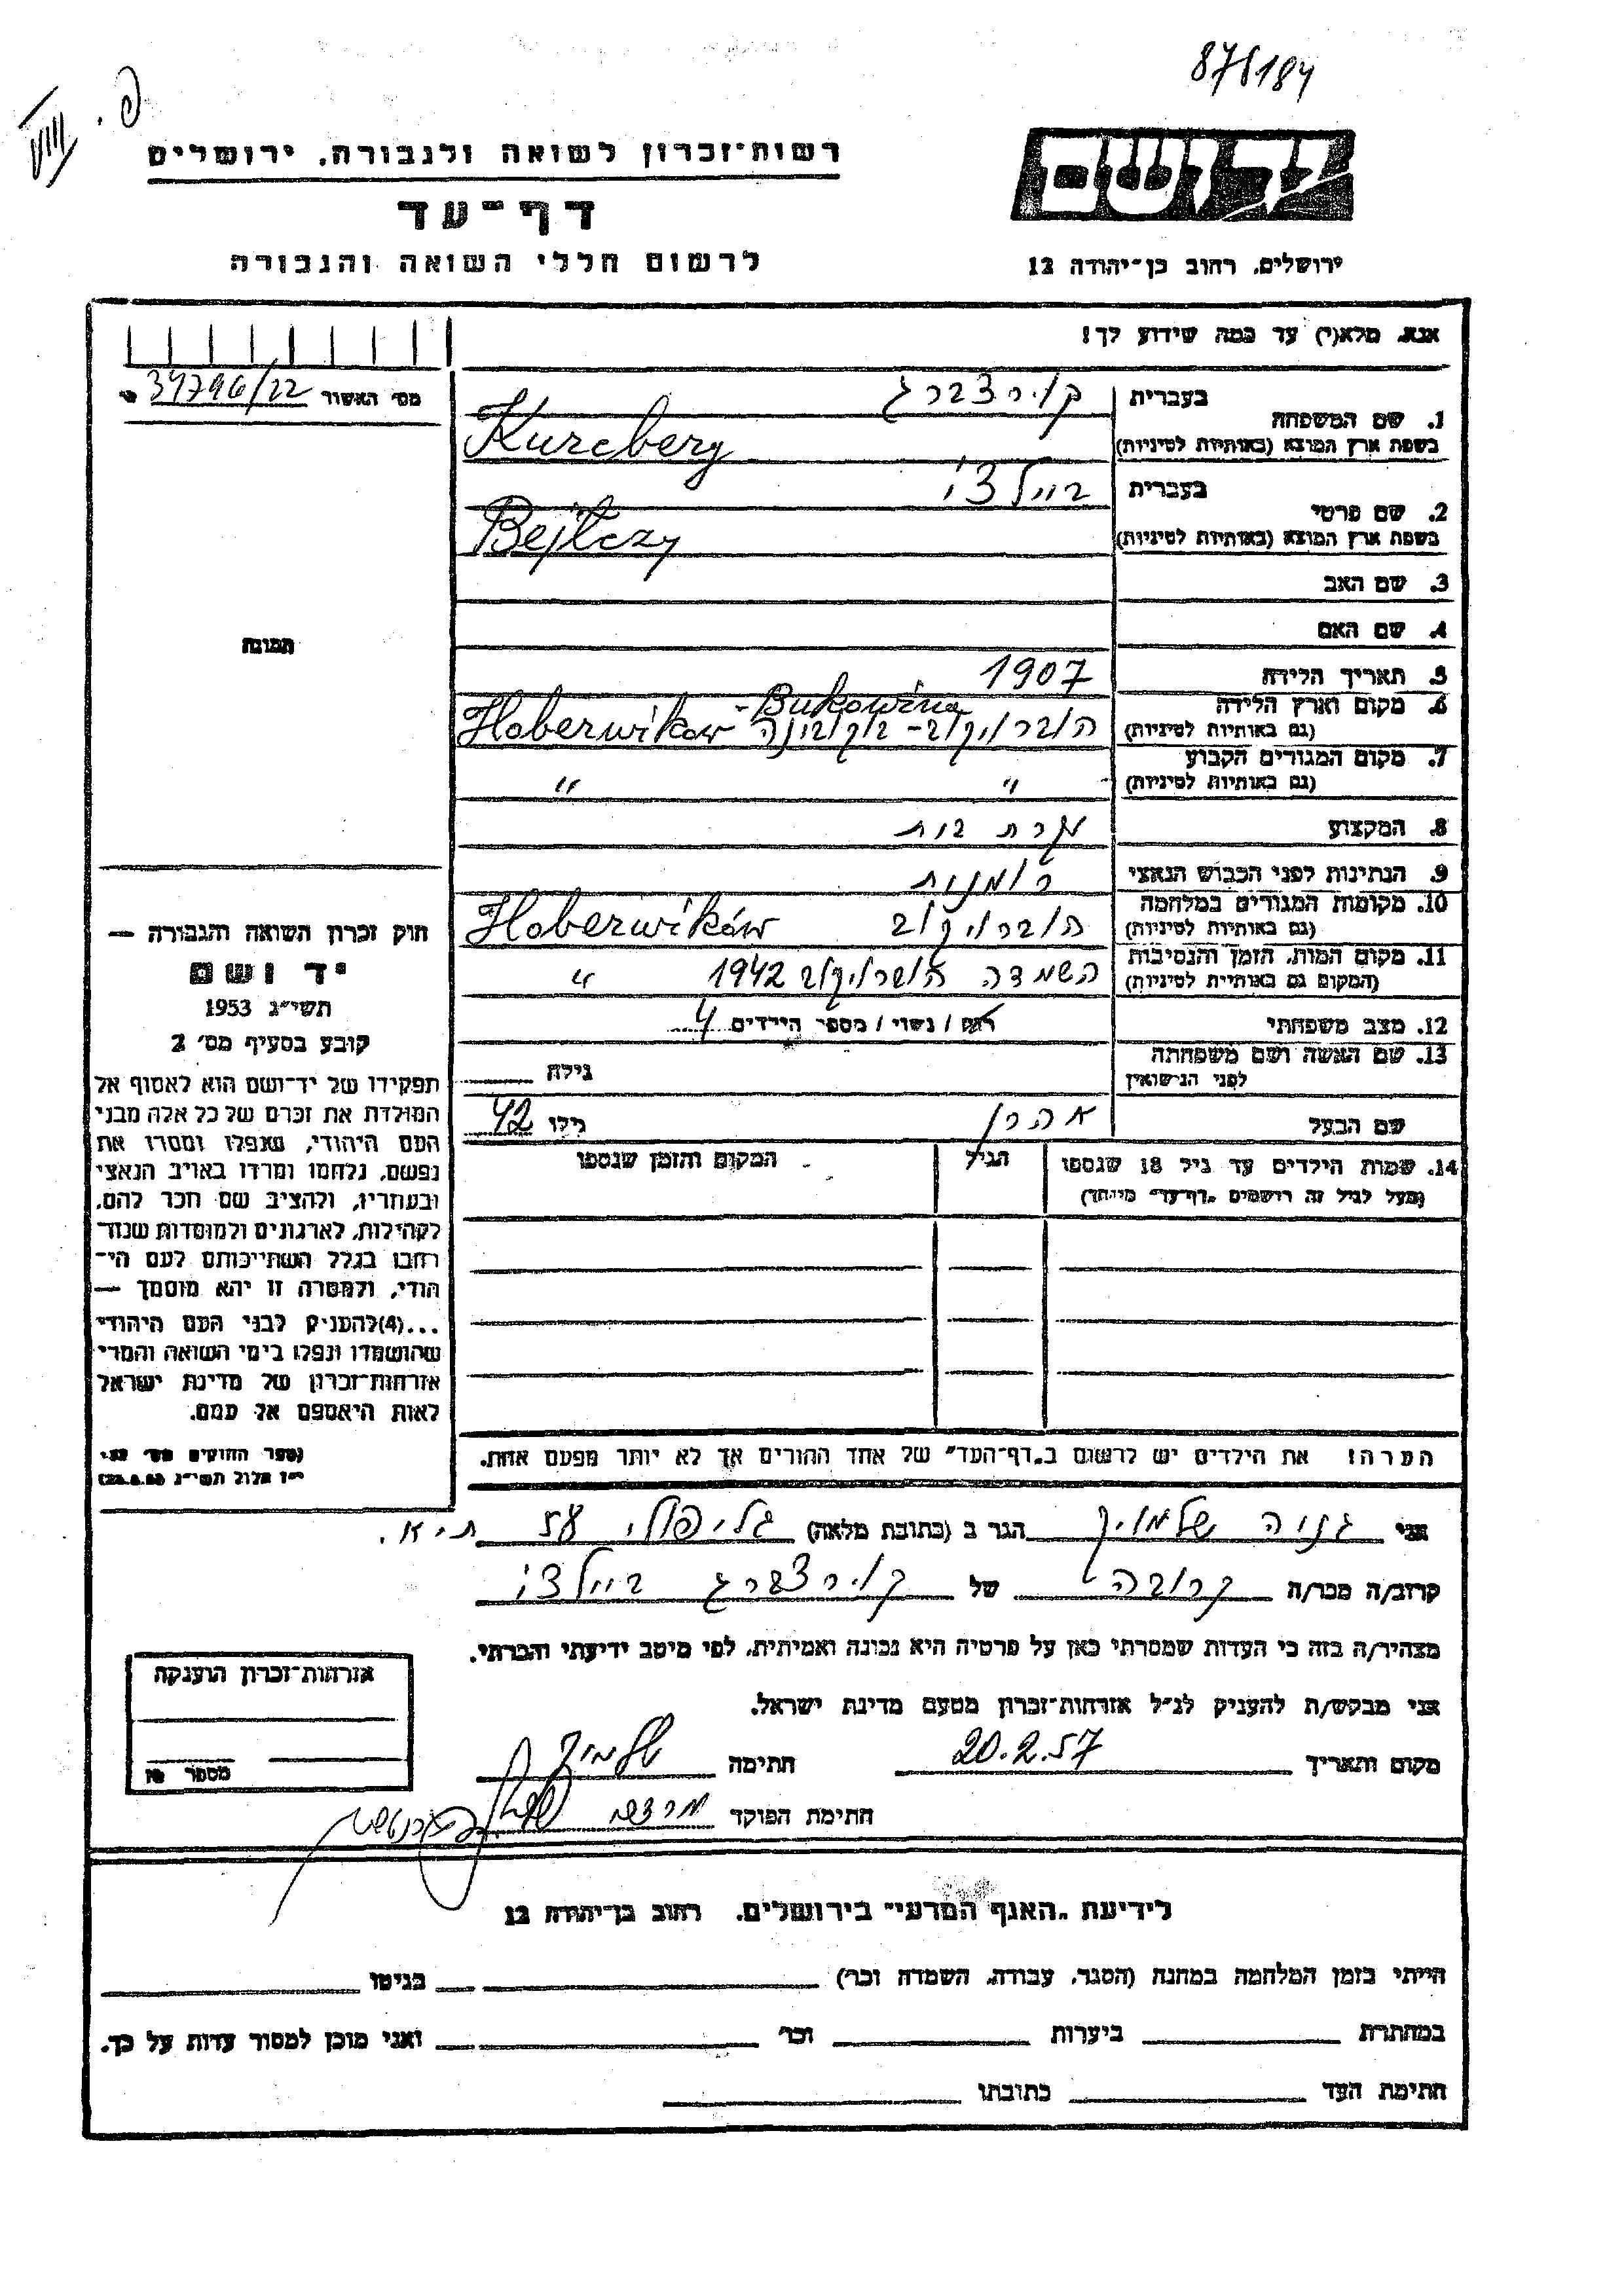 876184
פ. VIII
רשות־זכרון לשואה ולגבורה, ירושלים
דף־עד
לרשום חללי השואה והגבורה
יד ושם
ירושלים, רחוב בן־יהודה 12
אנא, מלא(י) עד כמה שידוע לך!
מס׳ האשור 34796/22
בעברית קורצברג
1. שם המשפחה
בשפת ארץ המוצא (באותיות לטיניות) Kurcberg
בעברית ביילצי
2. שם פרטי
בשפת ארץ המוצא (באותיות לטיניות) Bejłczy
3. שם האב
4. שם האם
5. תאריך הלידה 1907
6. מקום וארץ הלידה הוברויקוב - בוקובינה Hoberwikow - Bukowina
(גם באותיות לטיניות)
7. מקום המגורים הקבוע
(גם באותיות לטיניות) " "
8. המקצוע עקרת בית
9. הנתינות לפני הכבוש הנאצי רומנית
10. מקומות המגורים במלחמה הוברויקוב Hoberwików
(גם באותיות לטיניות)
11. מקום המות, הזמן והנסיבות השמדה הוברויקוב 1942 "
(המקום גם באותיות לטיניות)
12. מצב משפחתי רווק / נשוי / מספר הילדים 4
13. שם האשה ושם משפחתה
לפני הנישואין גילה
שם הבעל אהרן גילו 42
14. שמות הילדים עד גיל 18 שנספו הגיל המקום והזמן שנספו
(מעל לגיל זה רושמים „דף־עד״ מיוחד)
תמונה
חוק זכרון השואה והגבורה —
יד ושם
תשי״ג 1953
קובע בסעיף מס׳ 2
תפקידו של יד־ושם הוא לאסוף אל
המולדת את זכרם של כל אלה מבני
העם היהודי, שנפלו ומסרו את
נפשם, נלחמו ומרדו באויב הנאצי
ובעוזריו, ולהציב שם וזכר להם,
לקהילות, לארגונים ולמוסדות שנח־
רבו בגלל השתייכותם לעם הי־
הודי, ולמטרה זו יהא מוסמך —
...(4)להעניק לבני העם היהודי
שהושמדו ונפלו בימי השואה והמרי
אזרחות־זכרון של מדינת ישראל
לאות היאספם אל עמם.
(ספר החוקים מס׳ 132.
י״ז אלול תשי״ג 28.8.53)
הערה: את הילדים יש לרשום ב„דף־העד״ של אחד ההורים אך לא יותר מפעם אחת.
אני גניה שלמוביץ הגר ב (כתובת מלאה) גליפולי 58 ת״א.
קרוב/ה מכר/ה קרובה של קורצברג ביילצי
מצהיר/ה בזה כי העדות שמסרתי כאן על פרטיה היא נכונה ואמיתית, לפי מיטב ידיעתי והכרתי.
אני מבקש/ת להעניק לנ״ל אזרחות־זכרון מטעם מדינת ישראל.
מקום ותאריך 20.2.57 חתימה
חתימת הפוקד
אזרחות־זכרון הוענקה
מספר
לידיעת „האגף המדעי״ בירושלים, רחוב בן־יהודה 12
הייתי בזמן המלחמה במחנה (הסגר, עבודה, השמדה וכו׳) בגיטו
במחתרת ביערות וכו׳ ואני מוכן למסור עדות על כך.
חתימת העד כתובתו